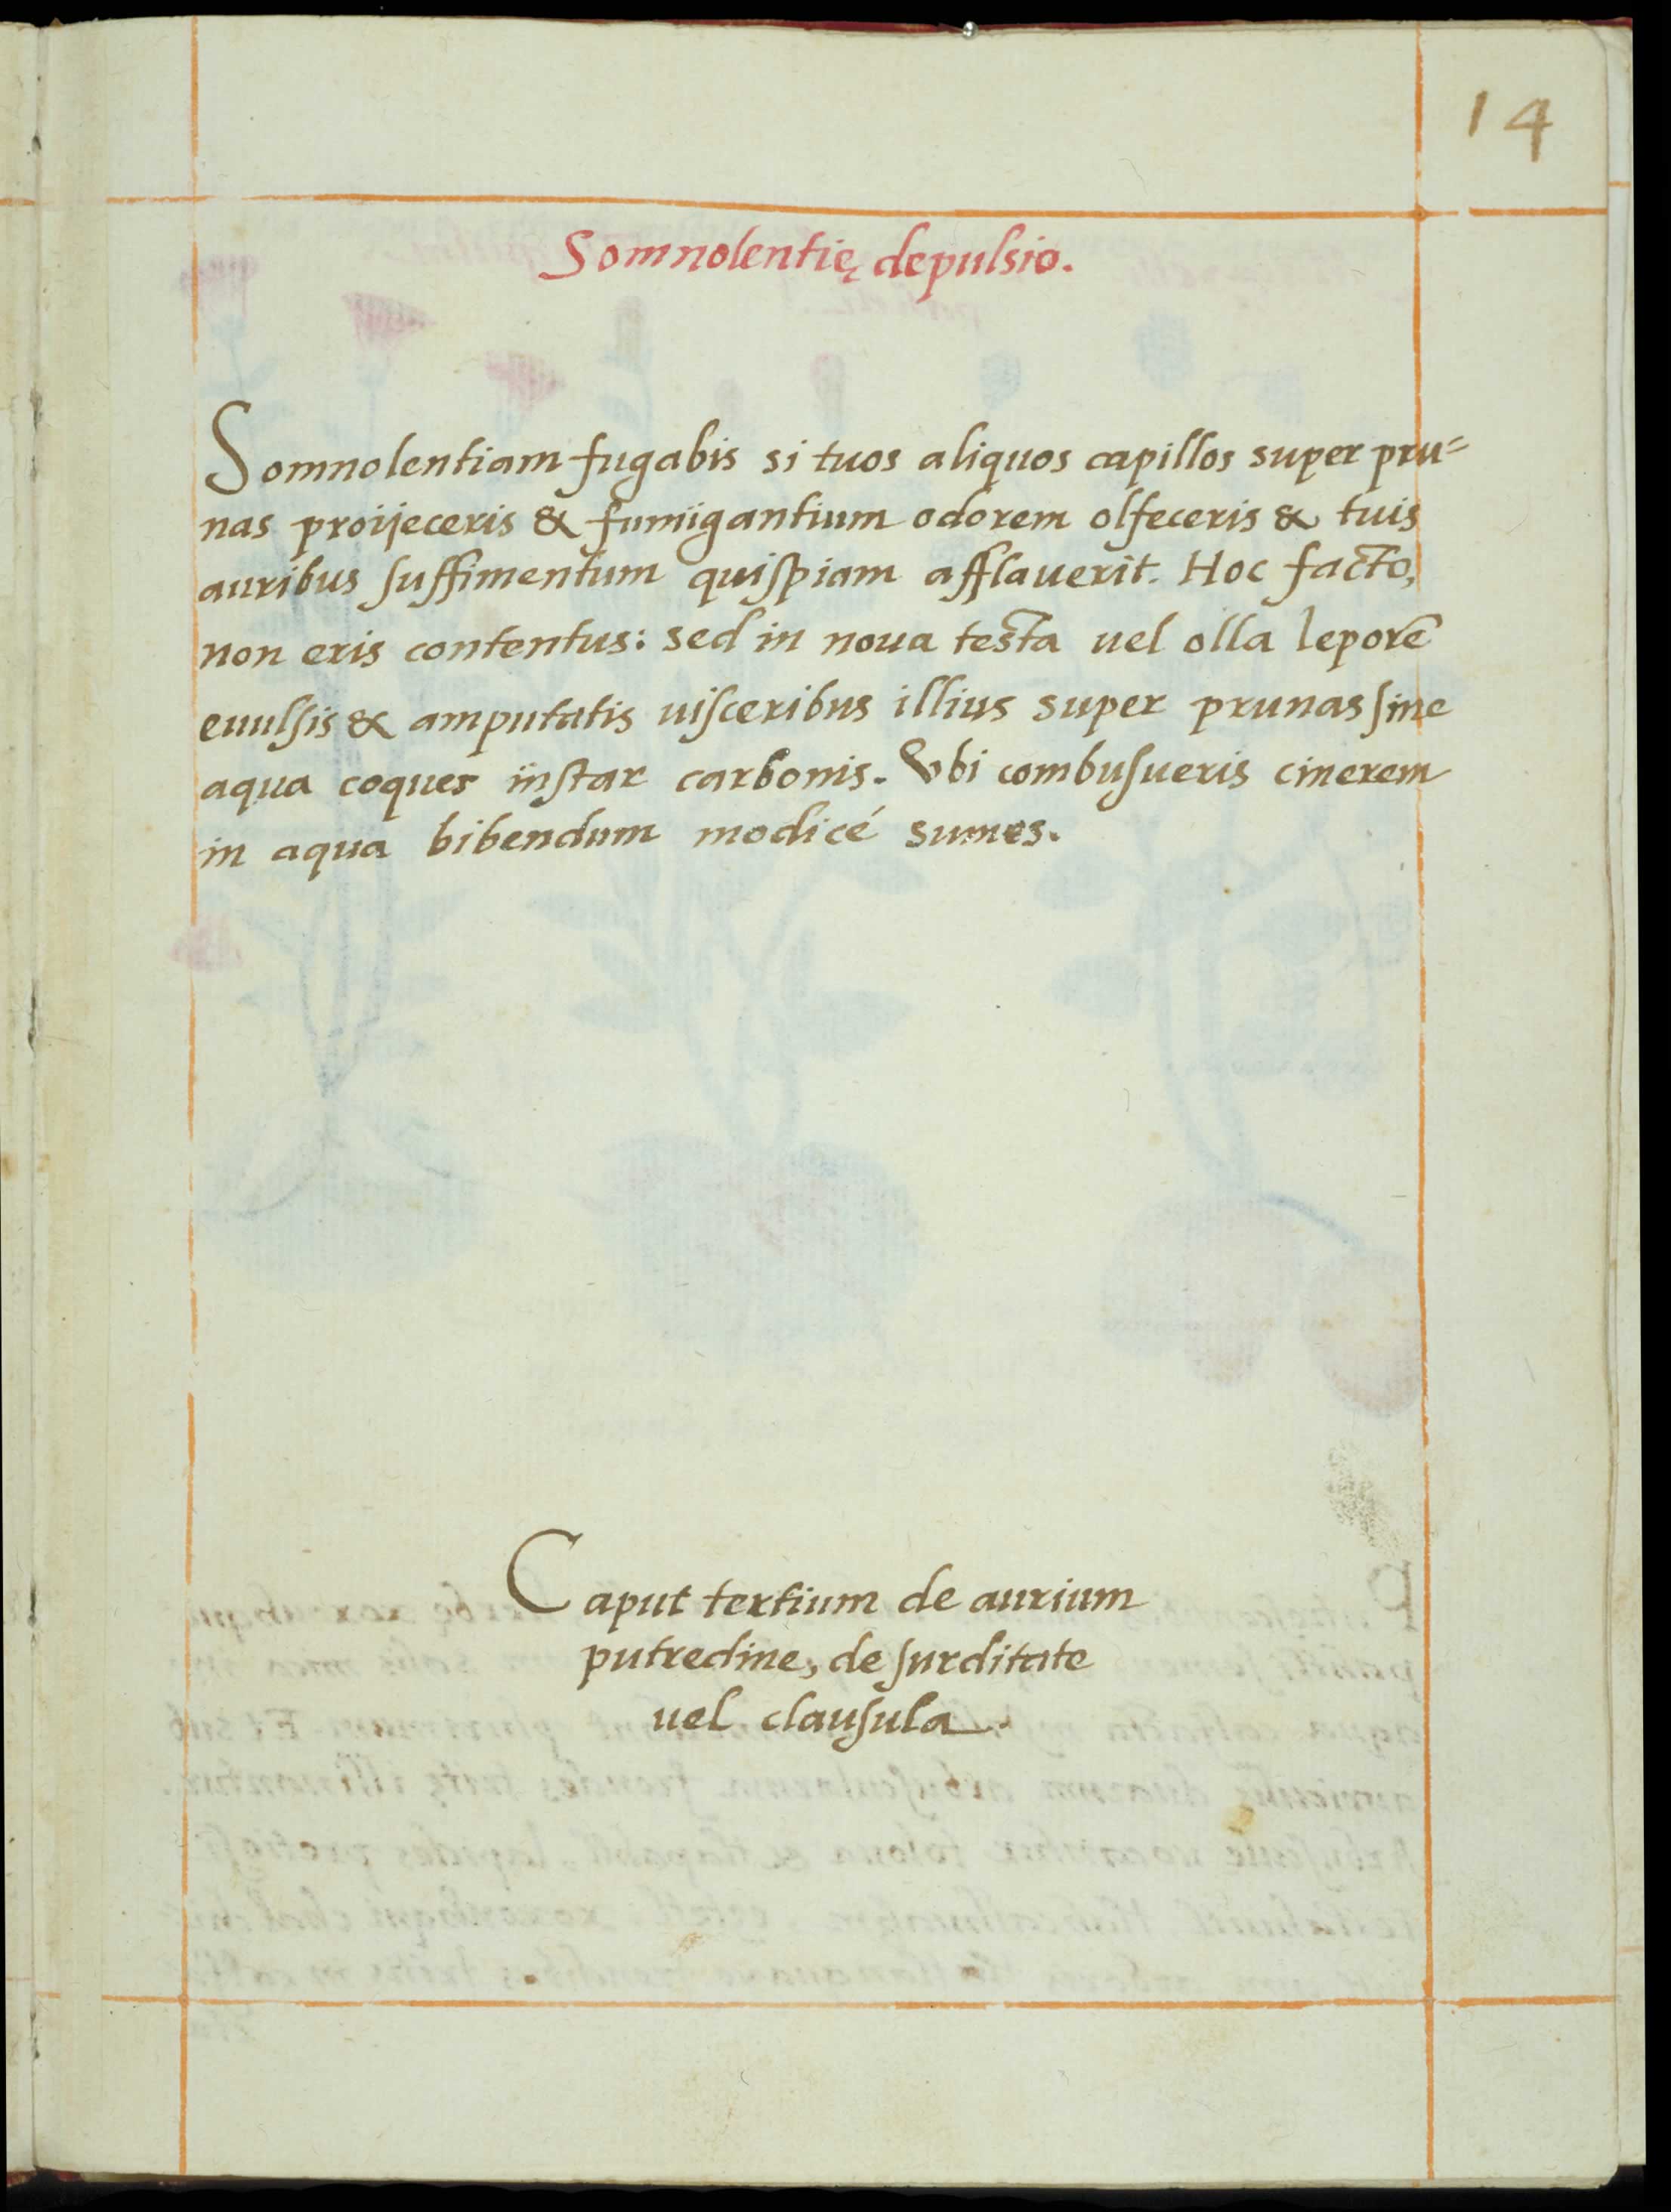 14
Somnolentię depulsio.
Somnolentiam fugabis si tuos aliquos capillos super pru=
nas proijeceris & fumigantium odorem olfeceris & tuis
auribus suffimentum quispiam afflauerit. Hoc facto,
non eris contentus: sed in noua testa uel olla leporē
euulsis & amputatis uisceribus illius super prunas sine
aqua coques instar carbonis. Vbi combusueris cinerem
in aqua bibendum modicé sumes.
Caput tertium de aurium
putredine, de surditate
uel clausula.